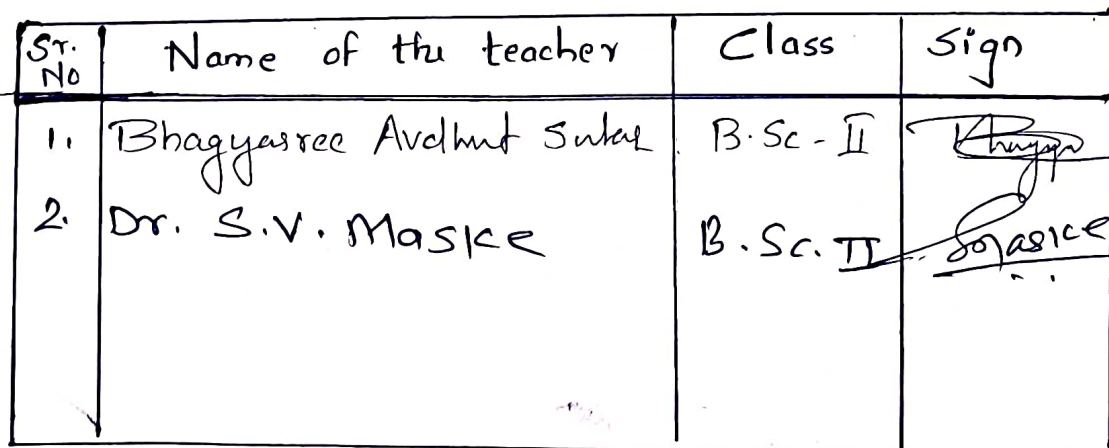 Sr. No Name of the teacher Class Sign
1. Bhagyasree Avdhut B.Sc - II
2. Dr. S.V. Maske B.Sc. II Maske